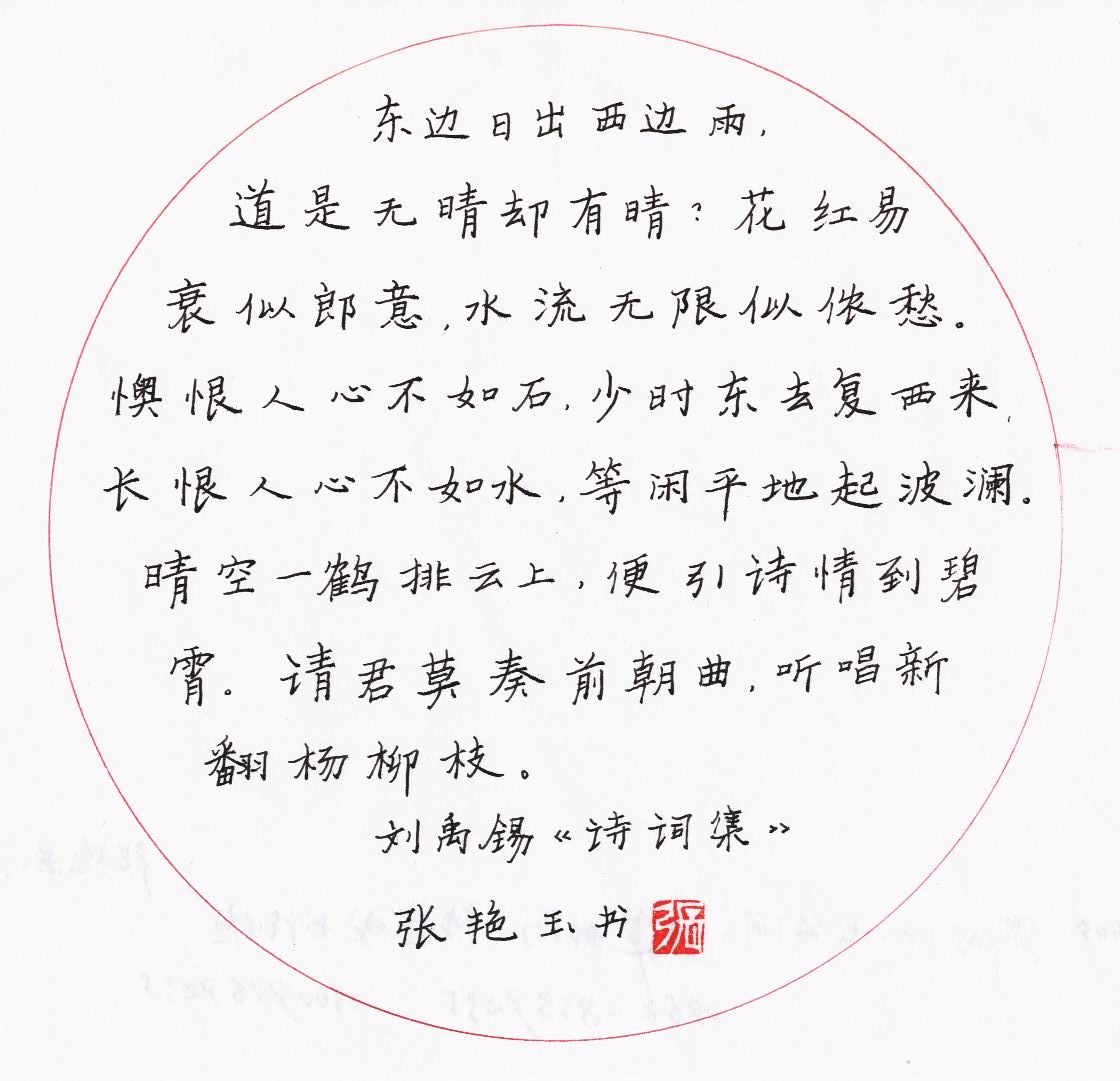 东边日出西边雨，
道是无晴却有晴？花红易
衰似郎意，水流无限似侬愁。
懊恨人心不如石，少时东去复西来，
长恨人心不如水，等闲平地起波澜。
晴空一鹤排云上，便引诗情到碧
霄。请君莫奏前朝曲，听唱新
翻杨柳枝。
刘禹锡《诗词集》
张艳玉书